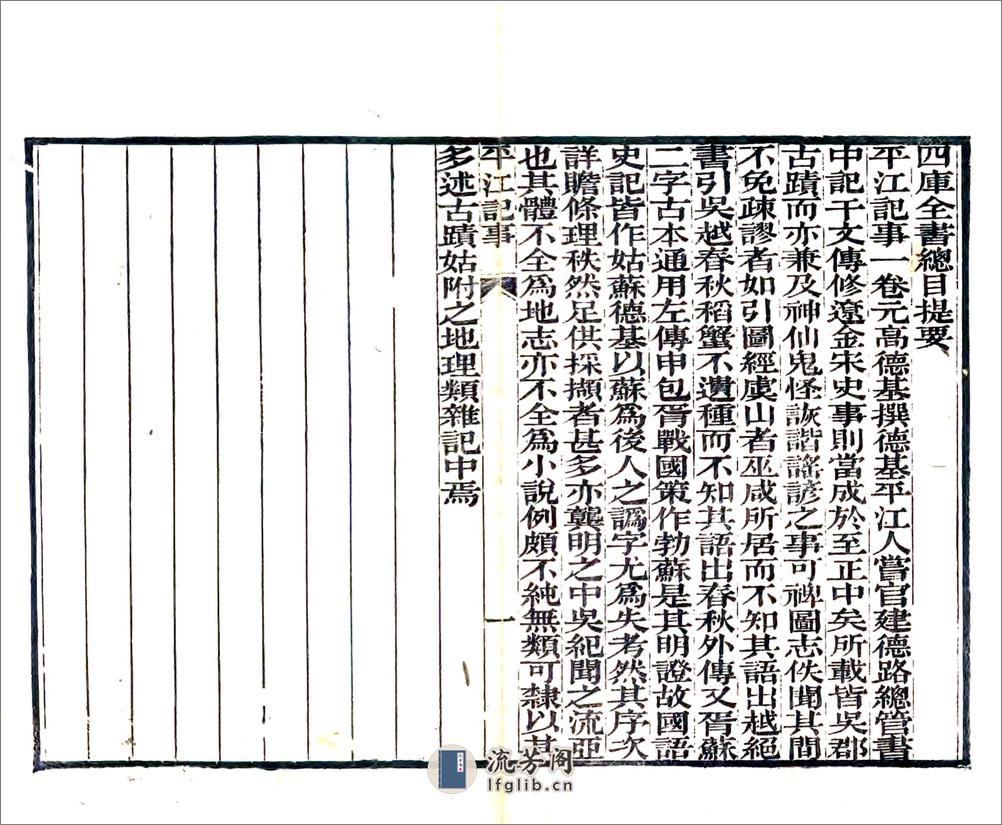 四庫全書總目提要
平江記事一卷元高德基撰德基平江人嘗官建德路總管書
中記于文傳修遼金宋史事則當成於至正中矣所載皆吳郡
古蹟而亦兼及神仙鬼怪詼諧謠諺之事可裨圖志佚聞其間
不免疎謬者如引圖經虞山者巫咸所居而不知其語出越絕
書引吳越春秋稻蟹不遺種而不知其語出春秋外傳又胥蘇
二字古本通用左傳申包胥戰國策作勃蘇是其明證故國語
史記皆作姑蘇德基以蘇為後人之譌字尤為失考然其序次
詳贍條理秩然足供採擷者甚多亦龔明之中吳紀聞之流亞
也其體不全為地志亦不全為小說例頗不純無類可隸以其
平江記事 一
多述古蹟姑附之地理類雜記中焉
流芳阁
lfglib.cn